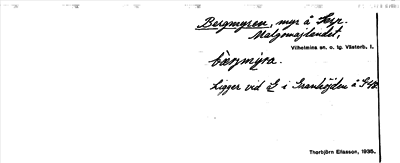 Bergmyren, myr å Skr.
Malgomajlandet,
Vilhelmina sn. o. tg. Västerb. l.
bærjmýra.
Ligger vid L i Granhöjden å G48.
Thorbjörn Eliasson, 1935.